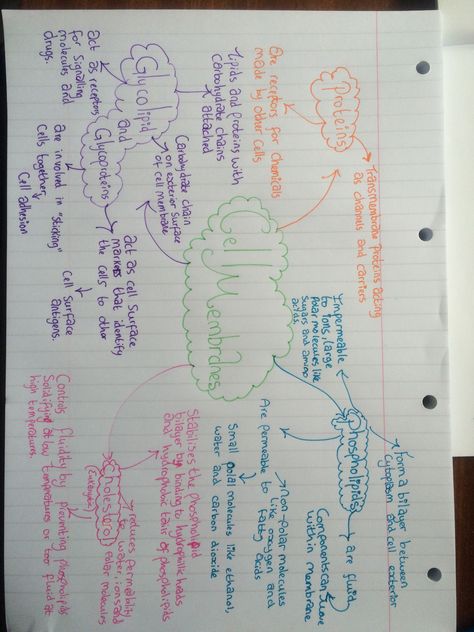 Cell Membranes
Proteins
Transmembrane proteins acting
as channels and carriers
Are receptors for chemicals
made by other cells
Phospholipids
Form a bilayer between
cytoplasm and cell exterior
are fluid
Components can move
within membrane
Impermeable
to ions, large
Polar molecules like
sugars and amino
acids
Are permeable to
Non-polar molecules
like oxygen and
fatty acids
Small polar molecules like ethanol,
water and carbon dioxide
Cholesterol
(Eukaryotic)
Stabilises the phospholipid
bilayer by binding to hydrophilic heads
and hydrophobic tails of phospholipids
reduces permeability
to water, ions and
polar molecules
Controls fluidity by preventing phospholipids
Solidifying at low temperatures or too fluid at
high temperatures.
Glycolipid
and
Glycoproteins
Lipids and proteins with
carbohydrate chains
attached
Carbohydrate chain
on exterior surface
of cell membrane
act as receptors
for Signalling
molecules and
drugs.
are involved in "sticking"
Cells together,
Cell adhesion
act as cell surface
markers that identify
the cells to other
Cell Surface
antigens.